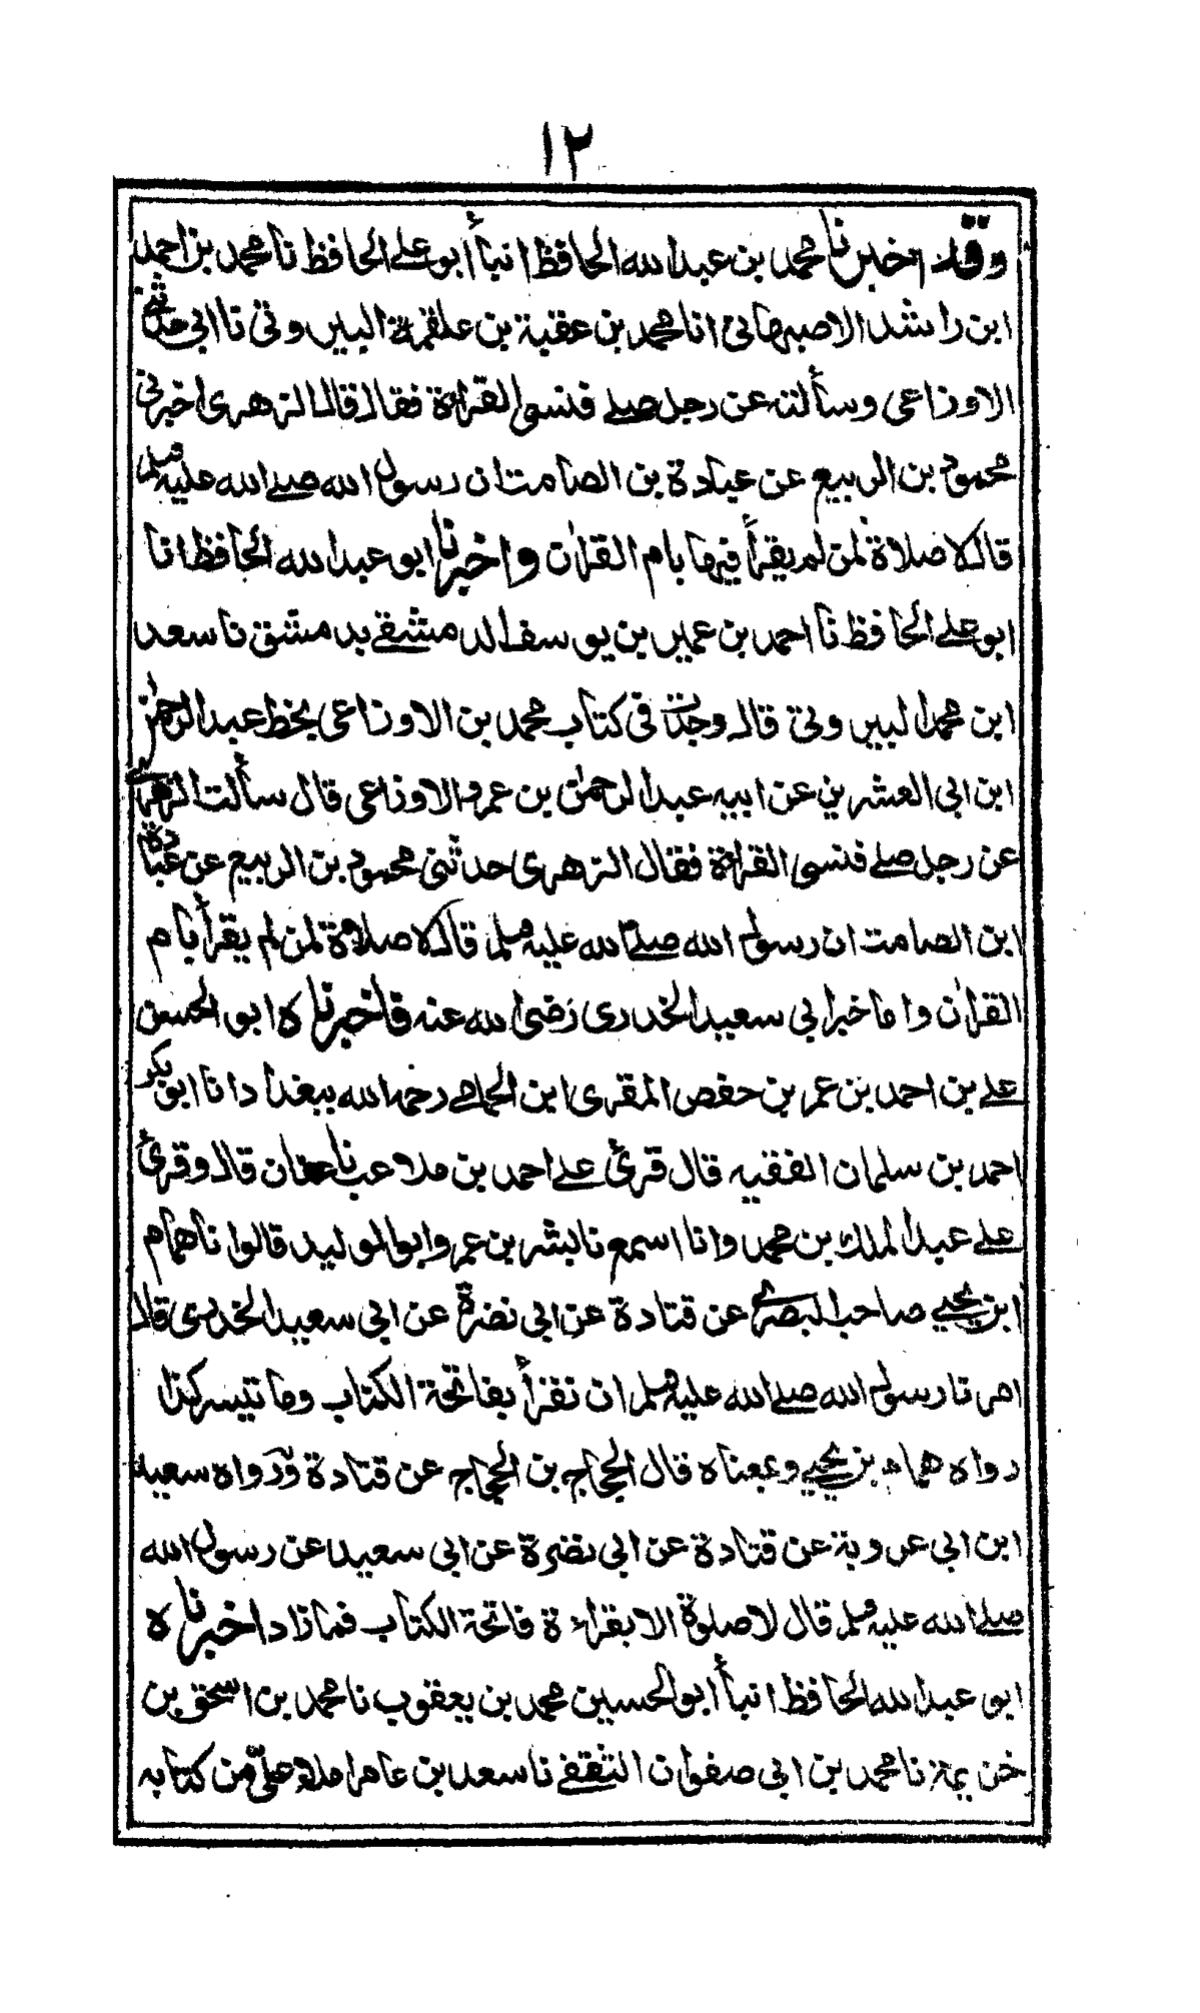 ١٢
وقد اخبرنا محمد بن عبد الله الحافظ انبأ ابو علے الحافظ نا محمد بن احمد
ابن راشد الاصبهانی انا محمد بن عقبة بن علقمة البیروتی نا ابی حدثنی
الاوزاعی وسألته عن رجل صلے فنسی القراءة فقال قال الزهری اخبرنی
محمود بن الربیع عن عبادة بن الصامت ان رسول الله صلے الله علیه وسلم
قال لا صلاة لمن لم یقرأ فیها بام القراٰن واخبرنا ابو عبد الله الحافظ انا
ابو علے الحافظ نا احمد بن عمیر بن یوسف الدمشقے بدمشق نا سعد
ابن محمد البیروتی قال وجدت فی کتاب محمد بن الاوزاعی بخط عبد الرحمٰن
ابن ابی العشرین عن ابیه عبد الرحمٰن بن عمرو الاوزاعی قال سألت الزهری
عن رجل صلے فنسی القراءة فقال الزهری حدثنی محمود بن الربیع عن عبادة
ابن الصامت ان رسول الله صلے الله علیه وسلم قال لا صلاة لمن لم یقرأ بام
القراٰن واما خبر ابی سعید الخدری رضی الله عنه فاخبرناه ابو الحسن
علے بن احمد بن عمر بن حفص المقری ابن الحمامے رحمه الله ببغداد انا ابو بکر
احمد بن سلمان الفقیه قال قرئ علے احمد بن ملاعب نا عفان قال وقرئ
علے عبد الملك بن محمد وانا اسمع نا بشر بن عمر وابو الولید قالوا نا همام
ابن یحیے صاحب البصری عن قتادة عن ابی نضرة عن ابی سعید الخدری قال
امرنا رسول الله صلے الله علیه وسلم ان نقرأ بفاتحة الکتاب وما تیسر کذا
رواه همام بن یحیے وبمعناه قال الحجاج بن الحجاج عن قتادة ورواه سعید
ابن ابی عروبة عن قتادة عن ابی نضرة عن ابی سعید عن رسول الله
صلے الله علیه وسلم قال لا صلوة الا بقراءة فاتحة الکتاب فما زاد اخبرناه
ابو عبد الله الحافظ انبأ ابو الحسین محمد بن یعقوب نا محمد بن اسحٰق بن
خزیمة نا محمد بن ابی صفوان الثقفے نا سعد بن عامر املاء علیّ من کتابه